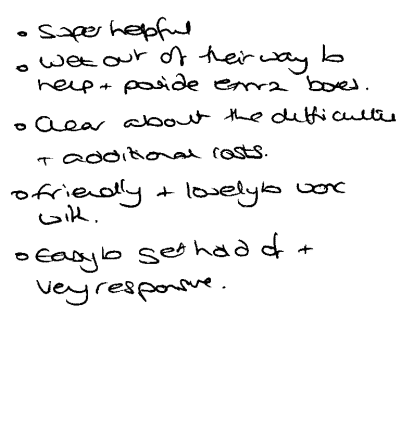 • Super helpful
• Went out of their way to
help + provide extra boxes.
• Clear about the difficulties
+ additional costs.
• friendly + lovely to work
with.
• Easy to get hold of +
very responsive.